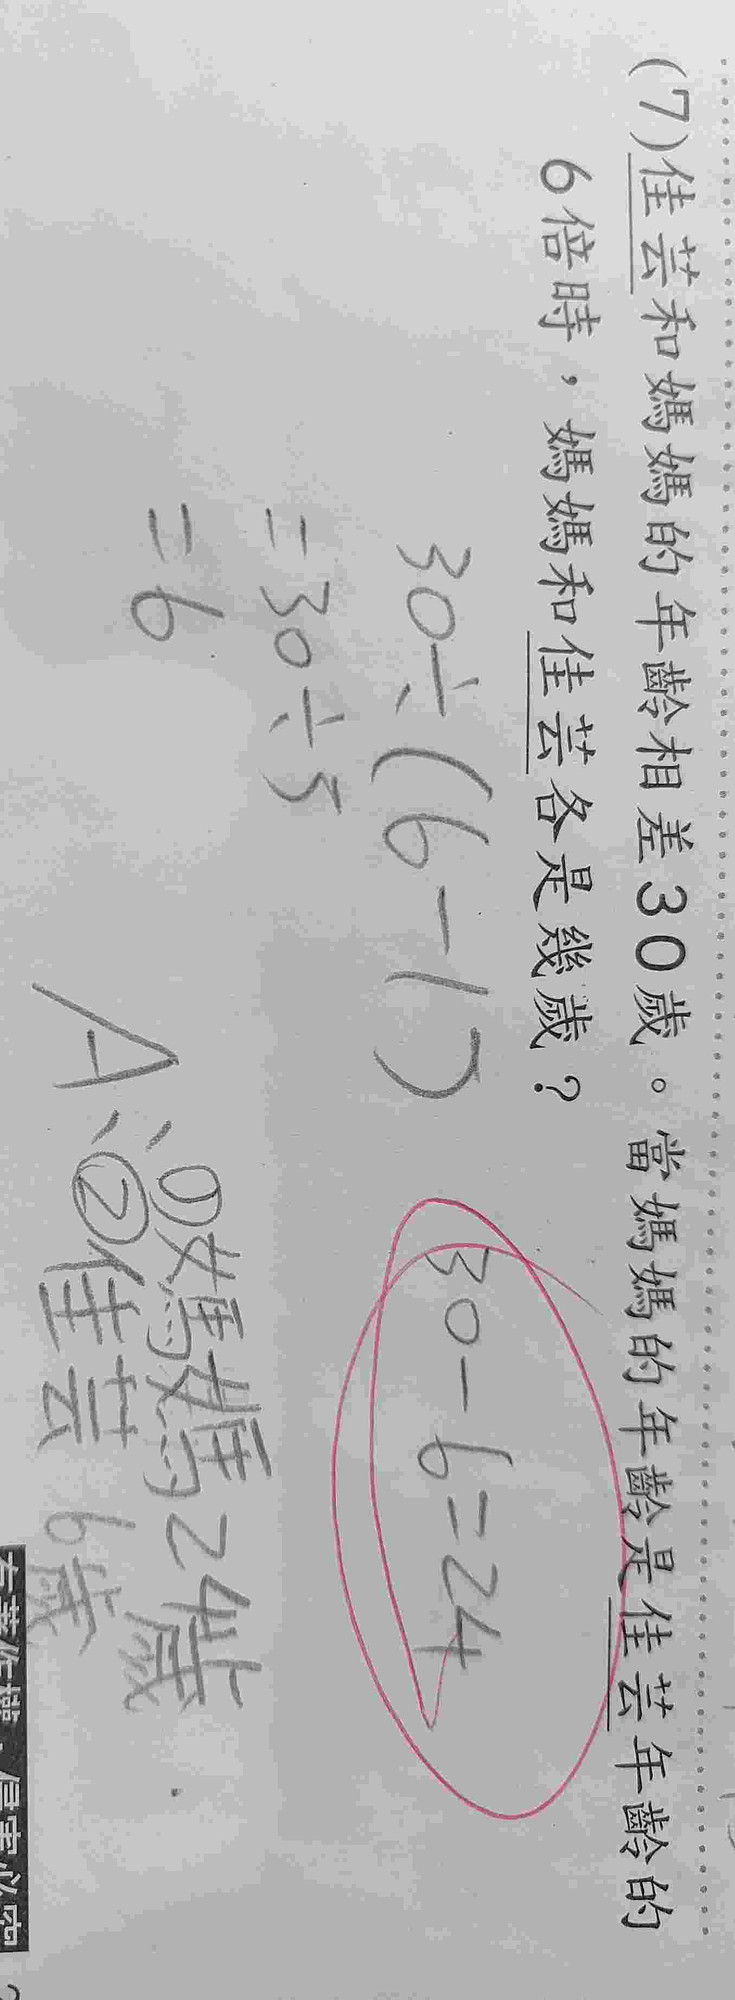 (7)佳芸和媽媽的年齡相差30歲。當媽媽的年齡是佳芸年齡的
6倍時，媽媽和佳芸各是幾歲？
30÷(6-1)
=30÷5
=6
30-6=24
A、①媽媽24歲
②佳芸6歲